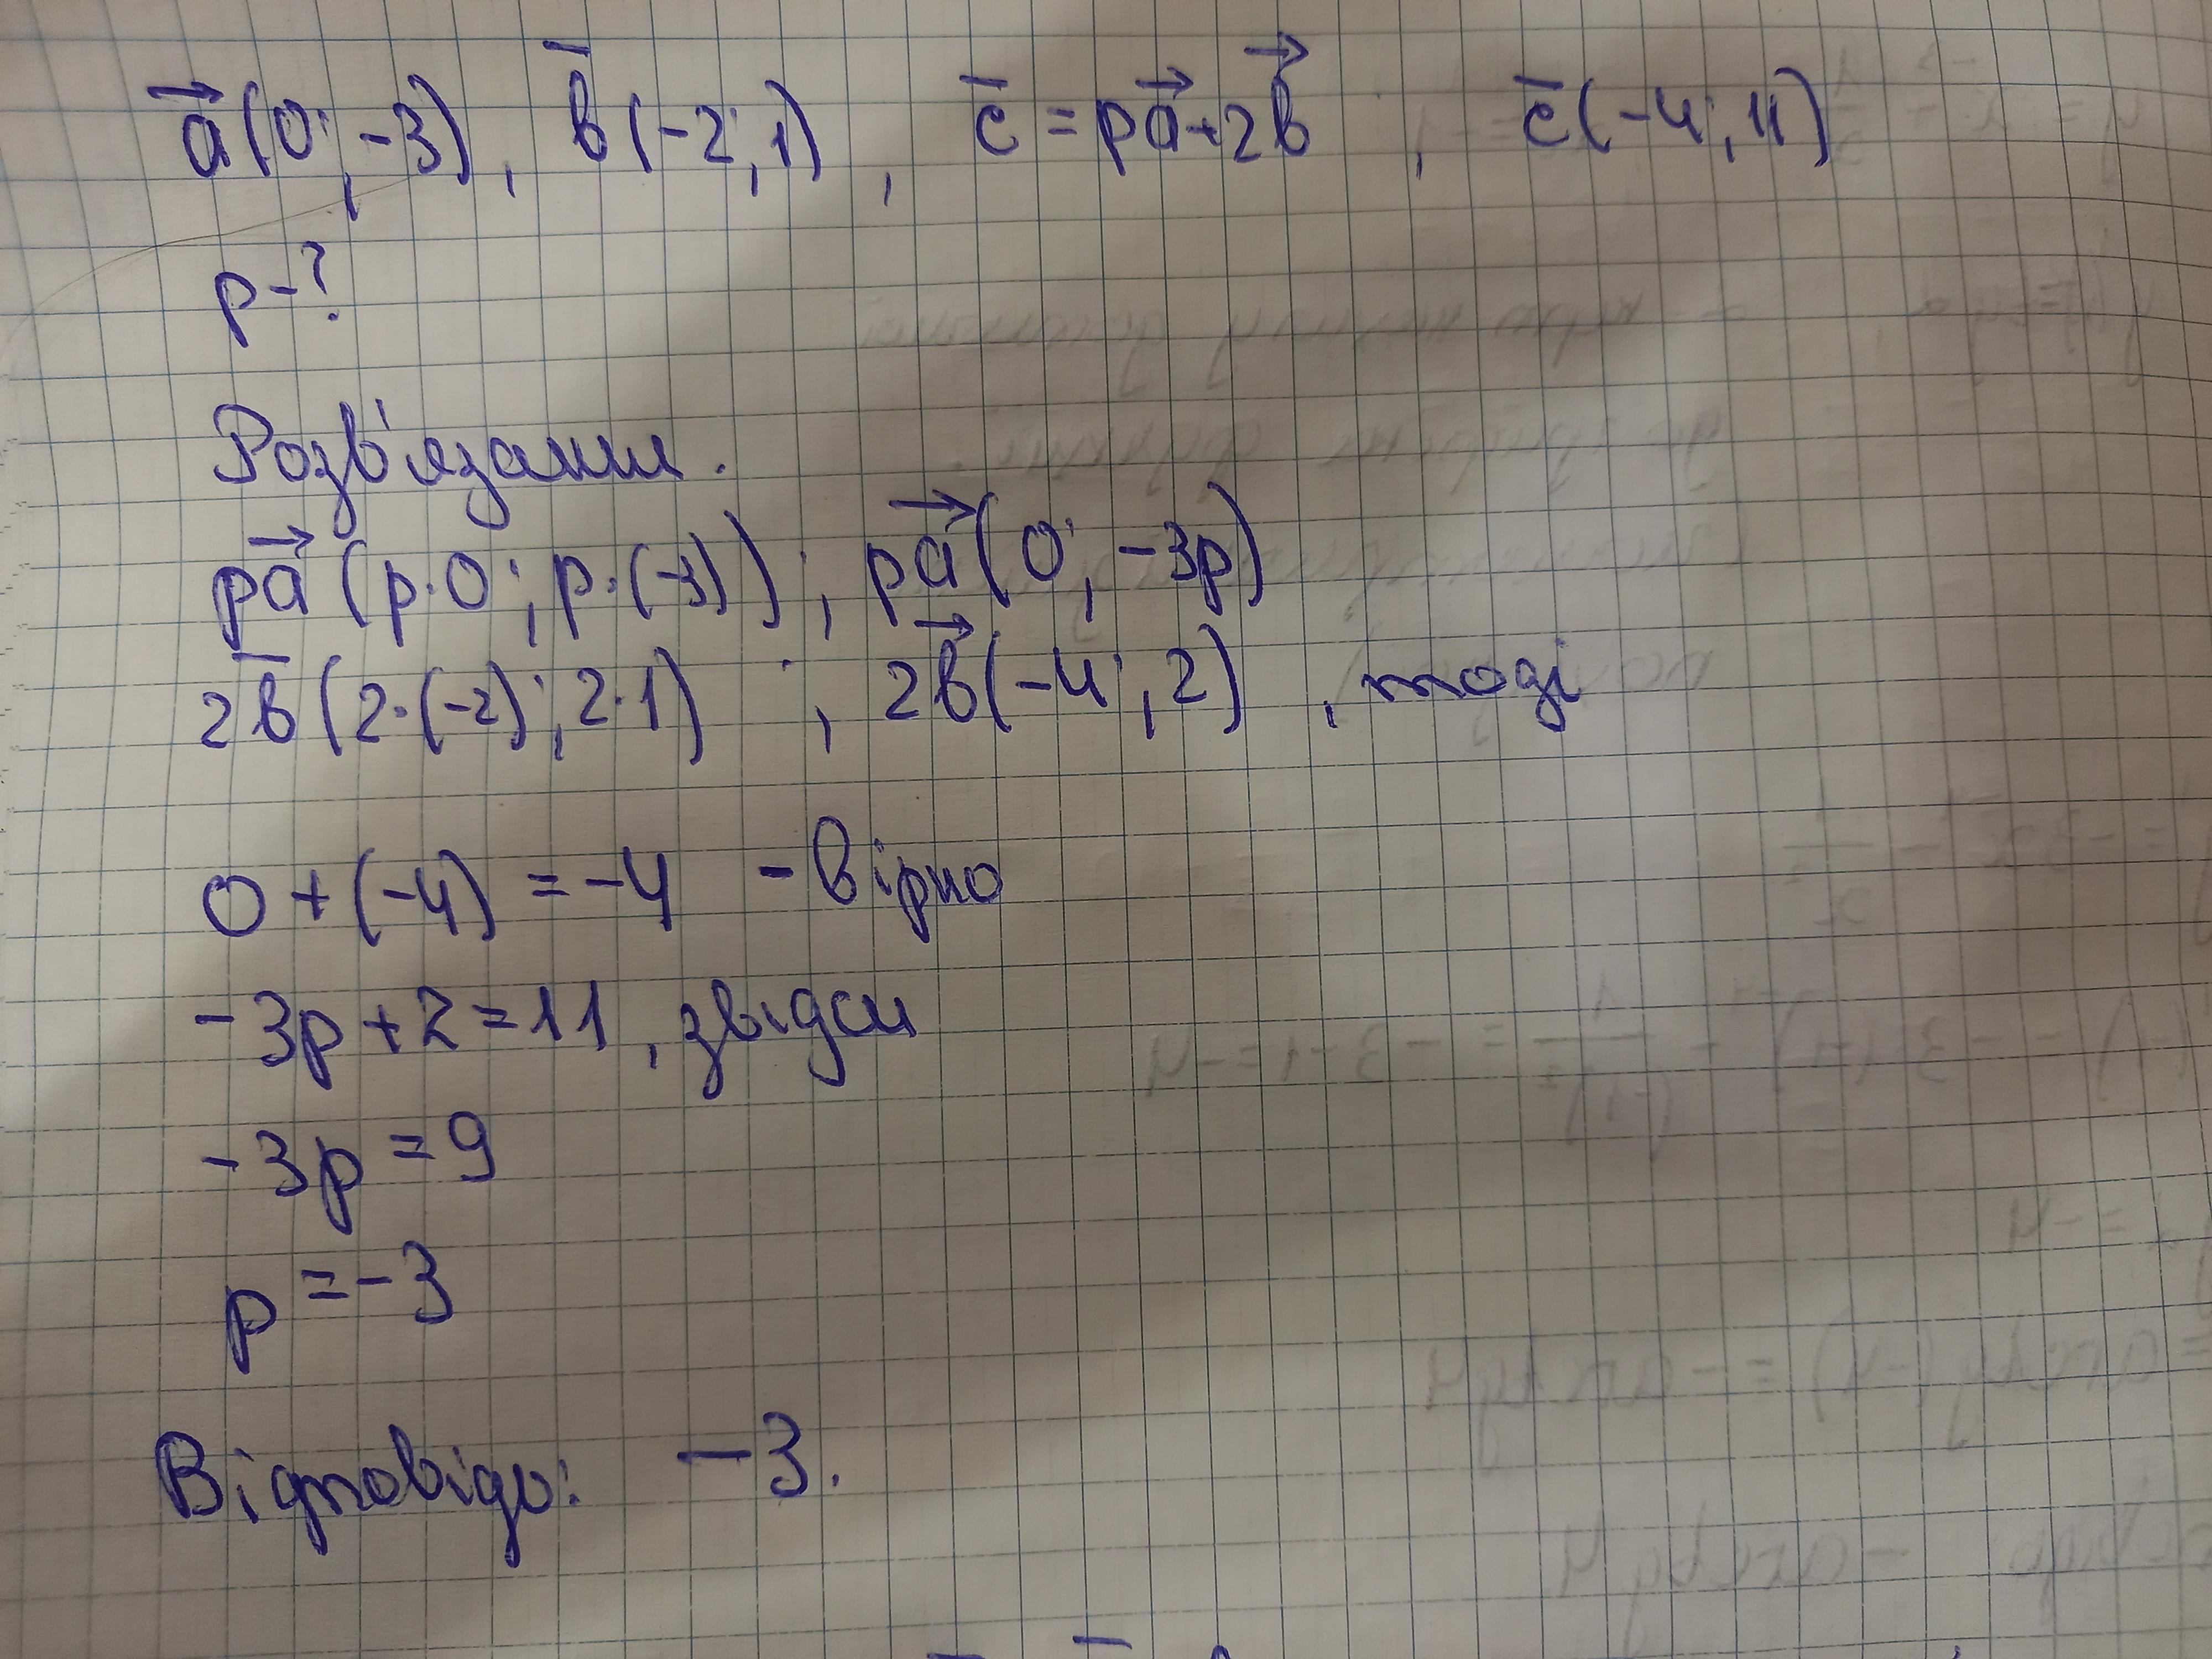 a⃗(0; -3), b̅(-2; 1), c̅ = pa⃗+2b⃗, c̅(-4; 11)
p-?
Розв'язання.
pa⃗(p·0; p·(-3)); pa⃗(0; -3p)
2b̅(2·(-2); 2·1); 2b⃗(-4; 2), тоді
0+(-4) = -4 - вірно
-3p+2=11, звідси
-3p = 9
p = -3
Відповідь: -3.